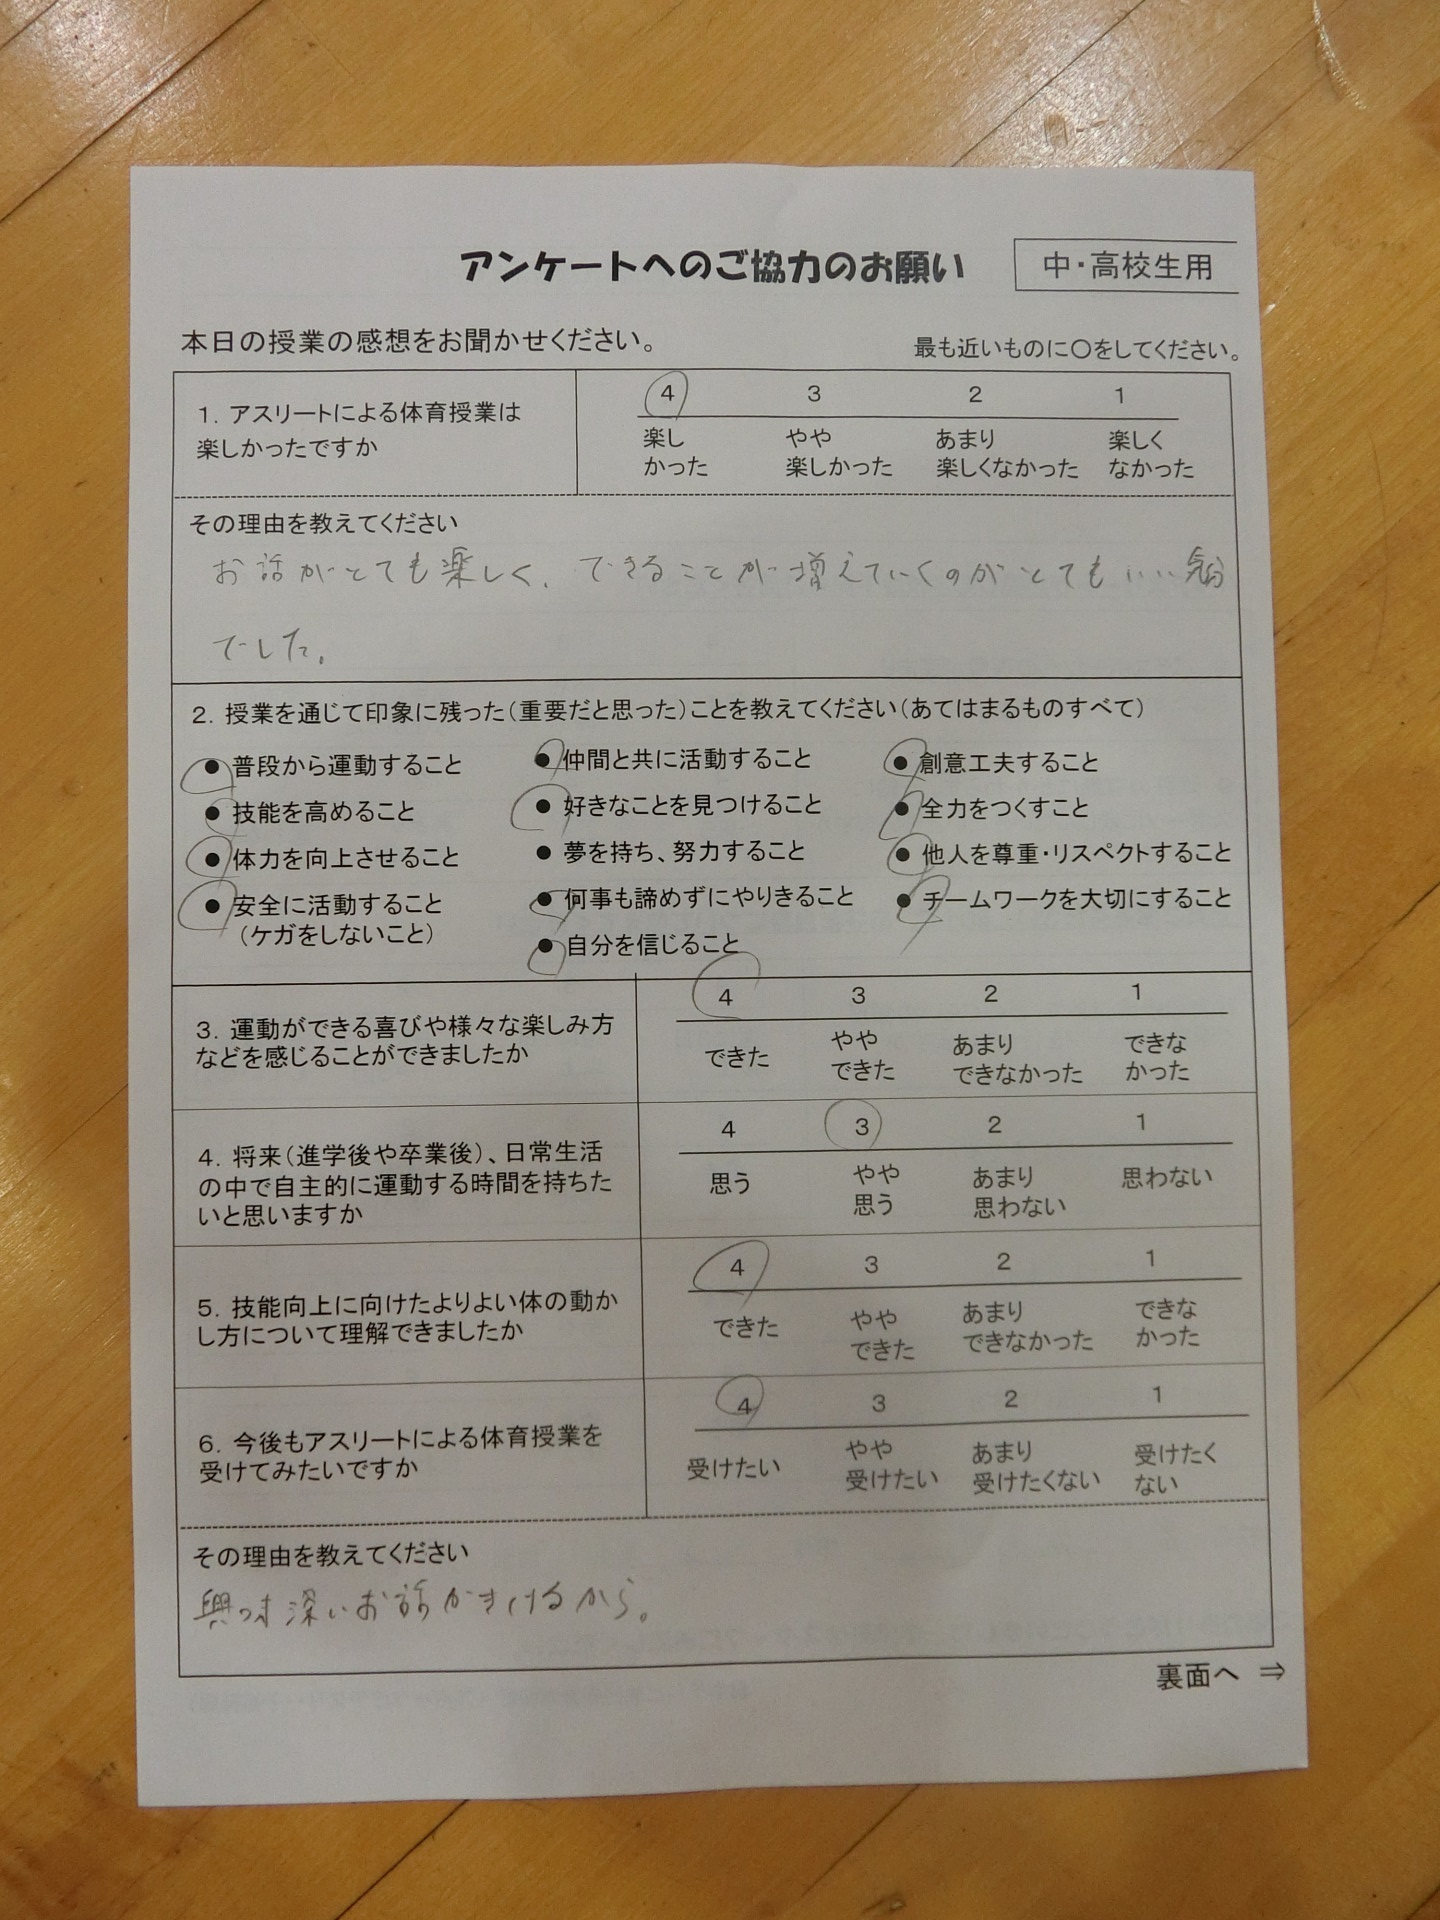 アンケートへのご協力のお願い
中・高校生用
本日の授業の感想をお聞かせください。
最も近いものに〇をしてください。
1. アスリートによる体育授業は
楽しかったですか
4 3 2 1
楽し
かった
やや
楽しかった
あまり
楽しくなかった
楽しく
なかった
その理由を教えてください
お話がとても楽しく、できることが増えていくのがとてもいい気分
でした。
2. 授業を通じて印象に残った(重要だと思った)ことを教えてください(あてはまるものすべて)
●普段から運動すること
●技能を高めること
●体力を向上させること
●安全に活動すること
(ケガをしないこと)
●仲間と共に活動すること
●好きなことを見つけること
●夢を持ち、努力すること
●何事も諦めずにやりきること
●自分を信じること
●創意工夫すること
●全力をつくすこと
●他人を尊重・リスペクトすること
●チームワークを大切にすること
3. 運動ができる喜びや様々な楽しみ方
などを感じることができましたか
4 3 2 1
できた
やや
できた
あまり
できなかった
できな
かった
4. 将来(進学後や卒業後)、日常生活
の中で自主的に運動する時間を持ちた
いと思いますか
4 3 2 1
思う
やや
思う
あまり
思わない
思わない
5. 技能向上に向けたよりよい体の動か
し方について理解できましたか
4 3 2 1
できた
やや
できた
あまり
できなかった
できな
かった
6. 今後もアスリートによる体育授業を
受けてみたいですか
4 3 2 1
受けたい
やや
受けたい
あまり
受けたくない
受けたく
ない
その理由を教えてください
興味深いお話がきけるから。
裏面へ ⇒